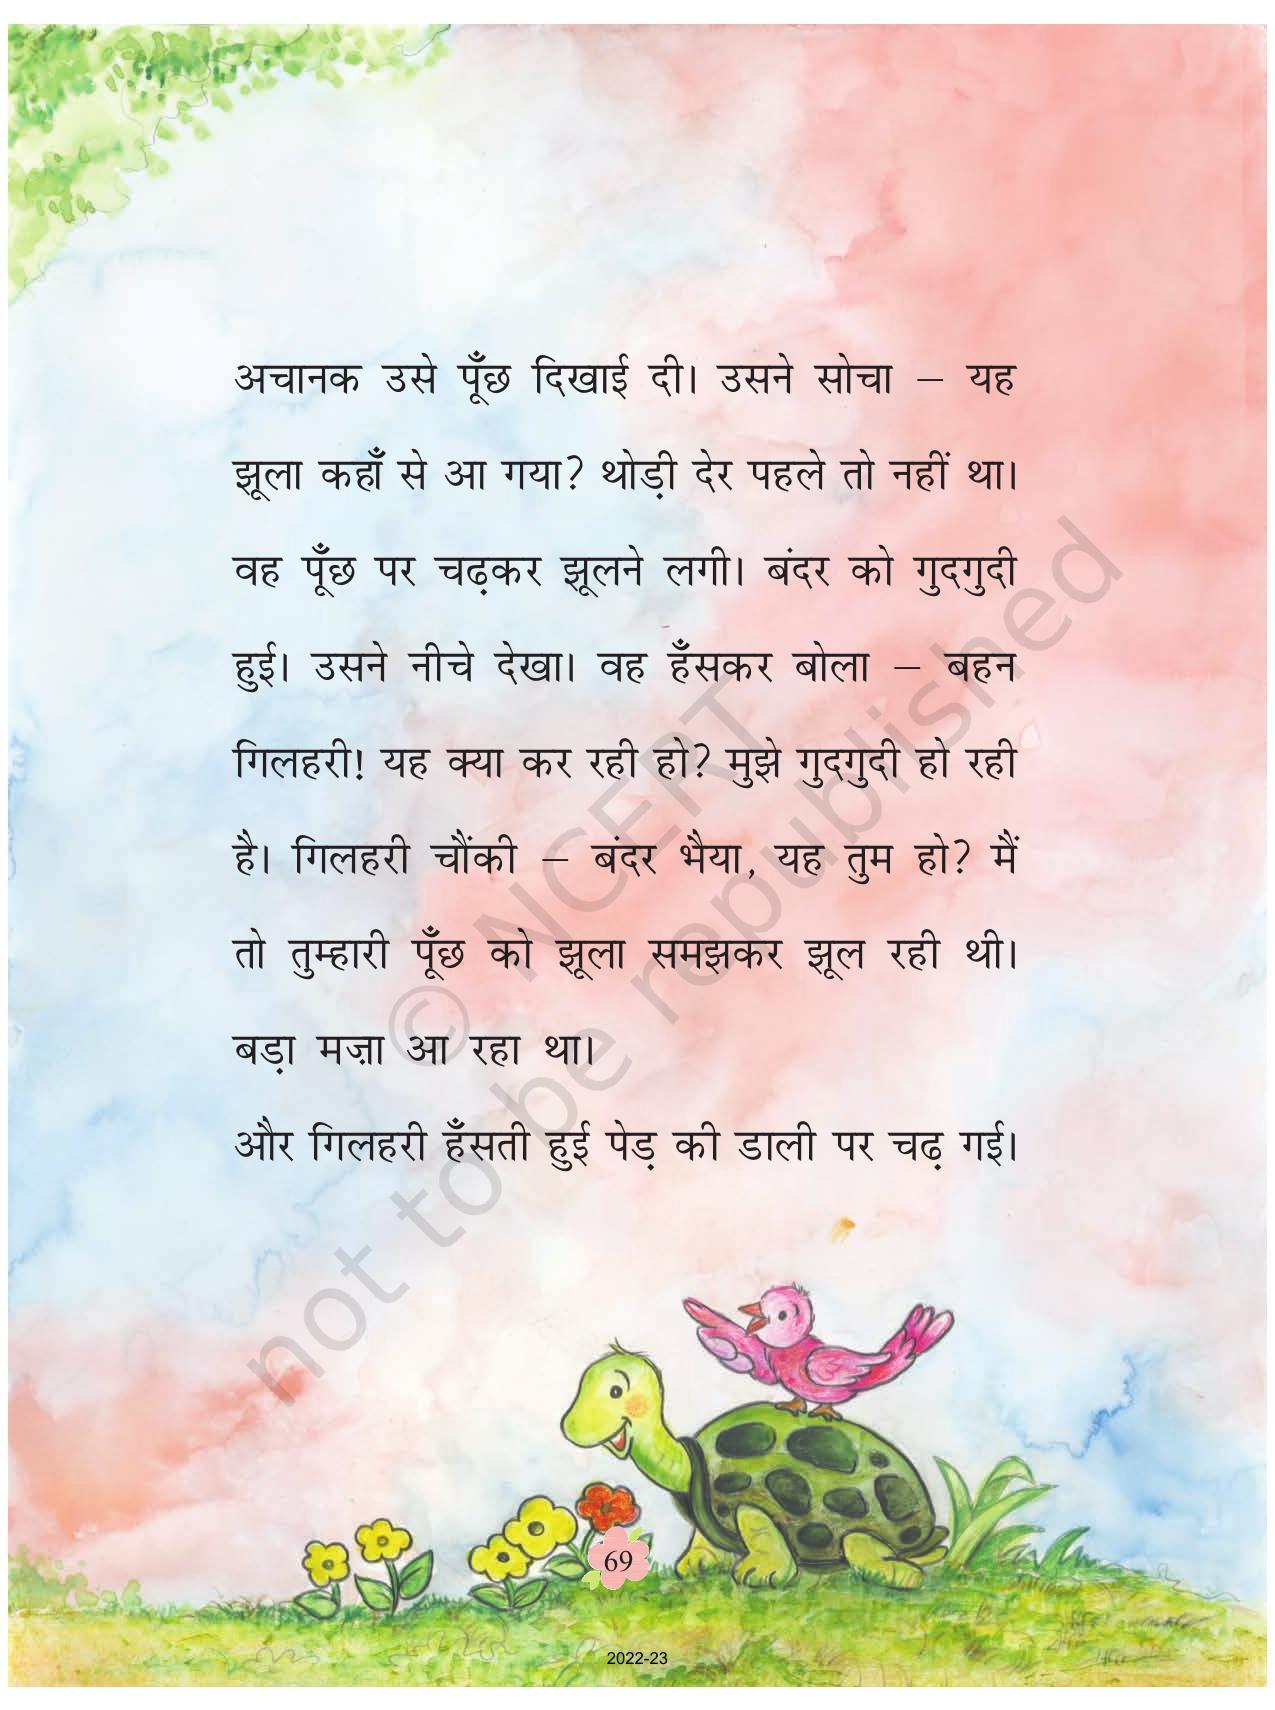 अचानक उसे पूँछ दिखाई दी। उसने सोचा – यह
झूला कहाँ से आ गया? थोड़ी देर पहले तो नहीं था।
वह पूँछ पर चढ़कर झूलने लगी। बंदर को गुदगुदी
हुई। उसने नीचे देखा। वह हँसकर बोला – बहन
गिलहरी! यह क्या कर रही हो? मुझे गुदगुदी हो रही
है। गिलहरी चौंकी – बंदर भैया, यह तुम हो? मैं
तो तुम्हारी पूँछ को झूला समझकर झूल रही थी।
बड़ा मज़ा आ रहा था।
और गिलहरी हँसती हुई पेड़ की डाली पर चढ़ गई।
© NCERT
not to be republished
69
2022-23